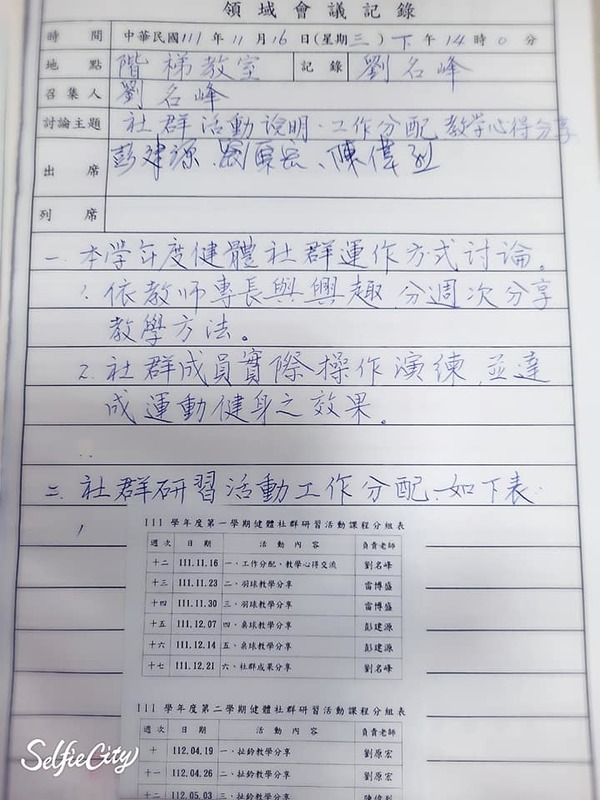 領域會議記錄
時間 中華民國111年11月16日(星期三)下午14時0分
地點 階梯教室 記錄 劉名峰
召集人 劉名峰
討論主題 社群活動說明、工作分配、教學心得分享
出席 彭建源、劉原宏、陳偉烈
列席
一、本學年度健體社群運作方式討論。
1. 依教師專長與興趣,分週次分享
教學方法。
2. 社群成員實際操作演練,並達
成運動健身之效果。
二、社群研習活動工作分配,如下表.
1
111 學年度第一學期健體社群研習活動課程分組表
週次 日期 活動內容 負責老師
十二 111.11.16 一、工作分配、教學心得交流 劉名峰
十三 111.11.23 二、羽球教學分享 雷博盛
十四 111.11.30 三、羽球教學分享 雷博盛
十五 111.12.07 四、桌球教學分享 彭建源
十六 111.12.14 五、桌球教學分享 彭建源
十七 111.12.21 六、社群成果分享 劉名峰
111 學年度第二學期健體社群研習活動課程分組表
週次 日期 活動內容 負責老師
十 112.04.19 一、扯鈴教學分享 劉原宏
十一 112.04.26 二、扯鈴教學分享 劉原宏
十二 112.05.03 三、 陳偉烈
SelfieCity